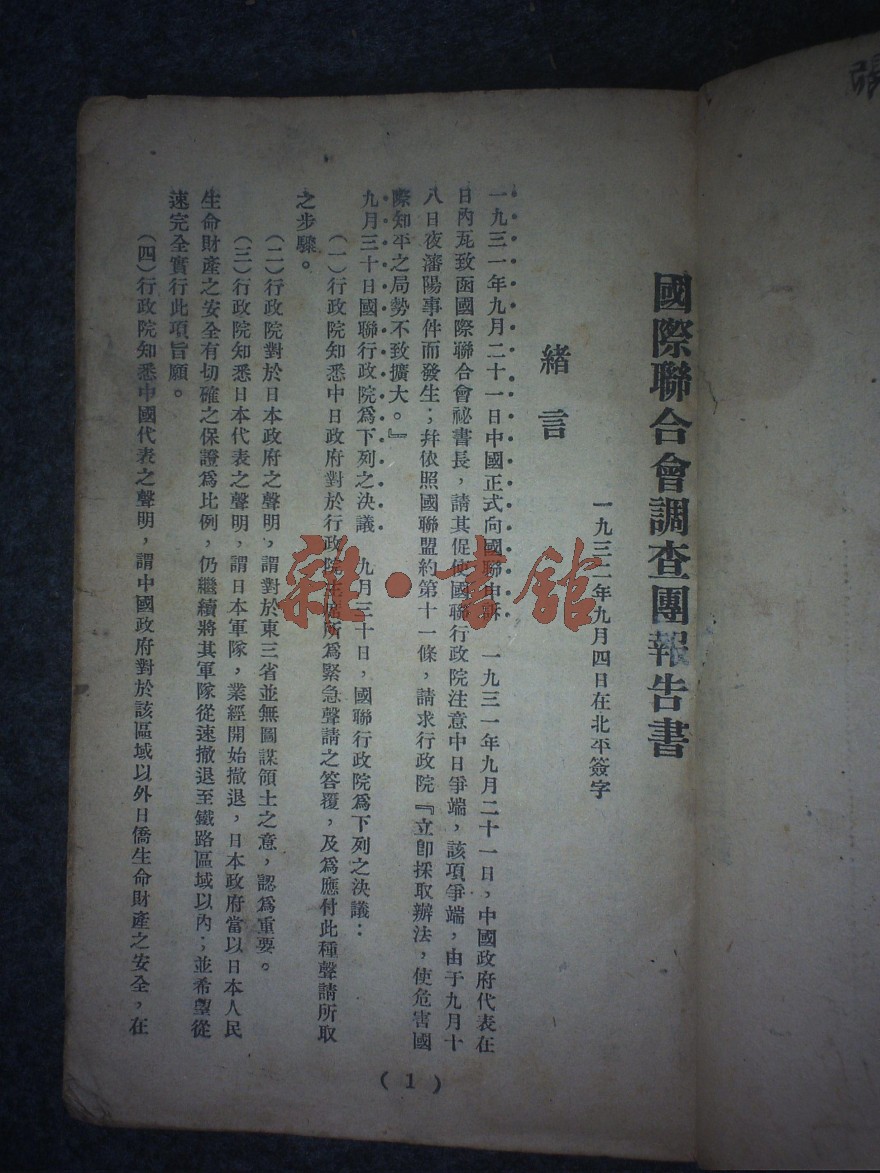 國際聯合會調查團報告書
一九三二年九月四日在北平簽字
緒言
一九三一年九月二十一日中國正式向國聯申訴　一九三一年九月二十一日，中國政府代表在
日內瓦致函國際聯合會祕書長，請其促使國聯行政院注意中日爭端，該項爭端，由于九月十
八日夜瀋陽事件而發生；幷依照國聯盟約第十一條，請求行政院『立卽採取辦法，使危害國
際知平之局勢不致擴大。』
九月三十日國聯行政院爲下列之決議　九月三十日，國聯行政院爲下列之決議：
（一）行政院知悉中日政府對於行政院主席所爲緊急聲請之答覆，及爲應付此種聲請所取
之步驟。
（二）行政院對於日本政府之聲明，謂對於東三省並無圖謀領土之意，認爲重要。
（三）行政院知悉日本代表之聲明，謂日本軍隊，業經開始撤退，日本政府當以日本人民
生命財產之安全有切確之保證爲比例，仍繼續將其軍隊從速撤退至鐵路區域以內；並希望從
速完全實行此項旨願。
（四）行政院知悉中國代表之聲明，謂中國政府對於該區域以外日僑生命財產之安全，在
(1)
雜·書館